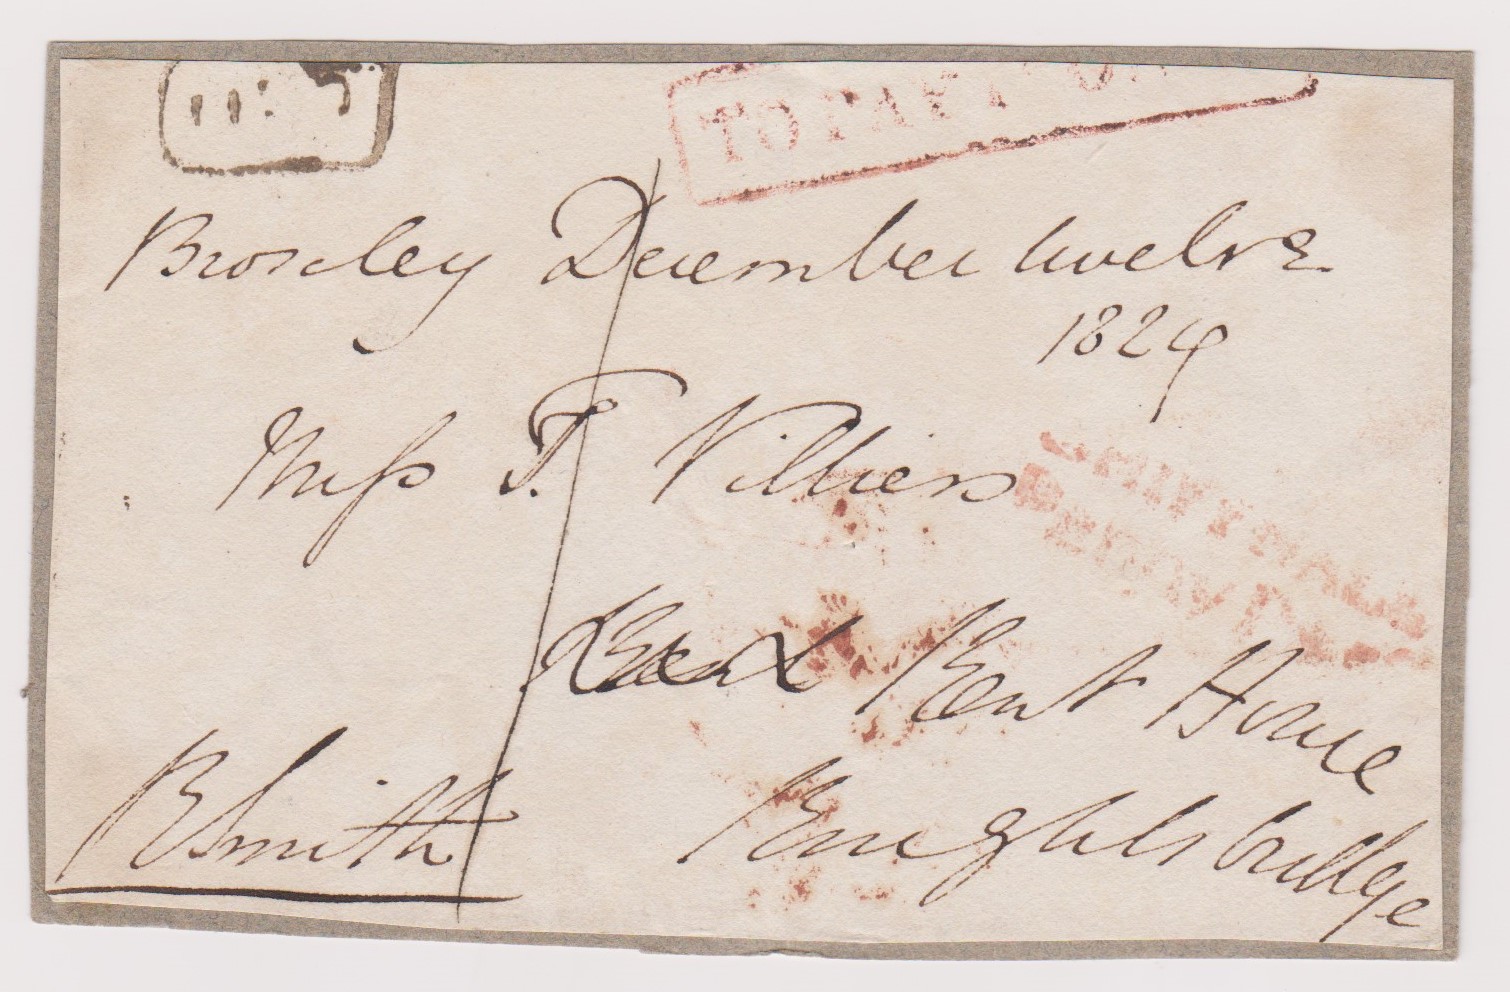 TO PAY
Broseley December twelve
1829
Miss T. Villiers
Kent House
Knightsbridge
RSmith